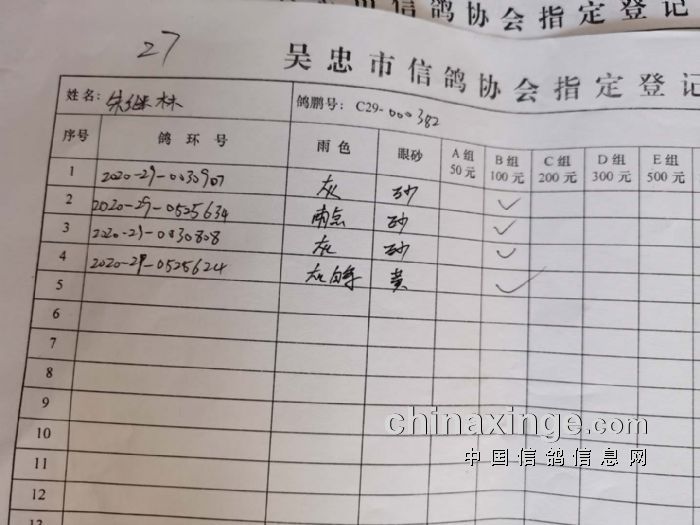 市信鸽协会指定登记
27
吴忠市信鸽协会指定登记
姓名：朱继林 鸽鹏号：C29-000382
序号 鸽环号 雨色 眼砂 A组 50元 B组 100元 C组 200元 D组 300元 E组 500元
1 2020-29-0030907 灰 砂 ✓
2 2020-29-0525634 雨点 砂 ✓
3 2020-29-0030808 灰 砂 ✓
4 2020-29-0525624 灰白条 黄 ✓
5
6
7
8
9
10
11
12
13
chinaxinge.com
中国信鸽信息网